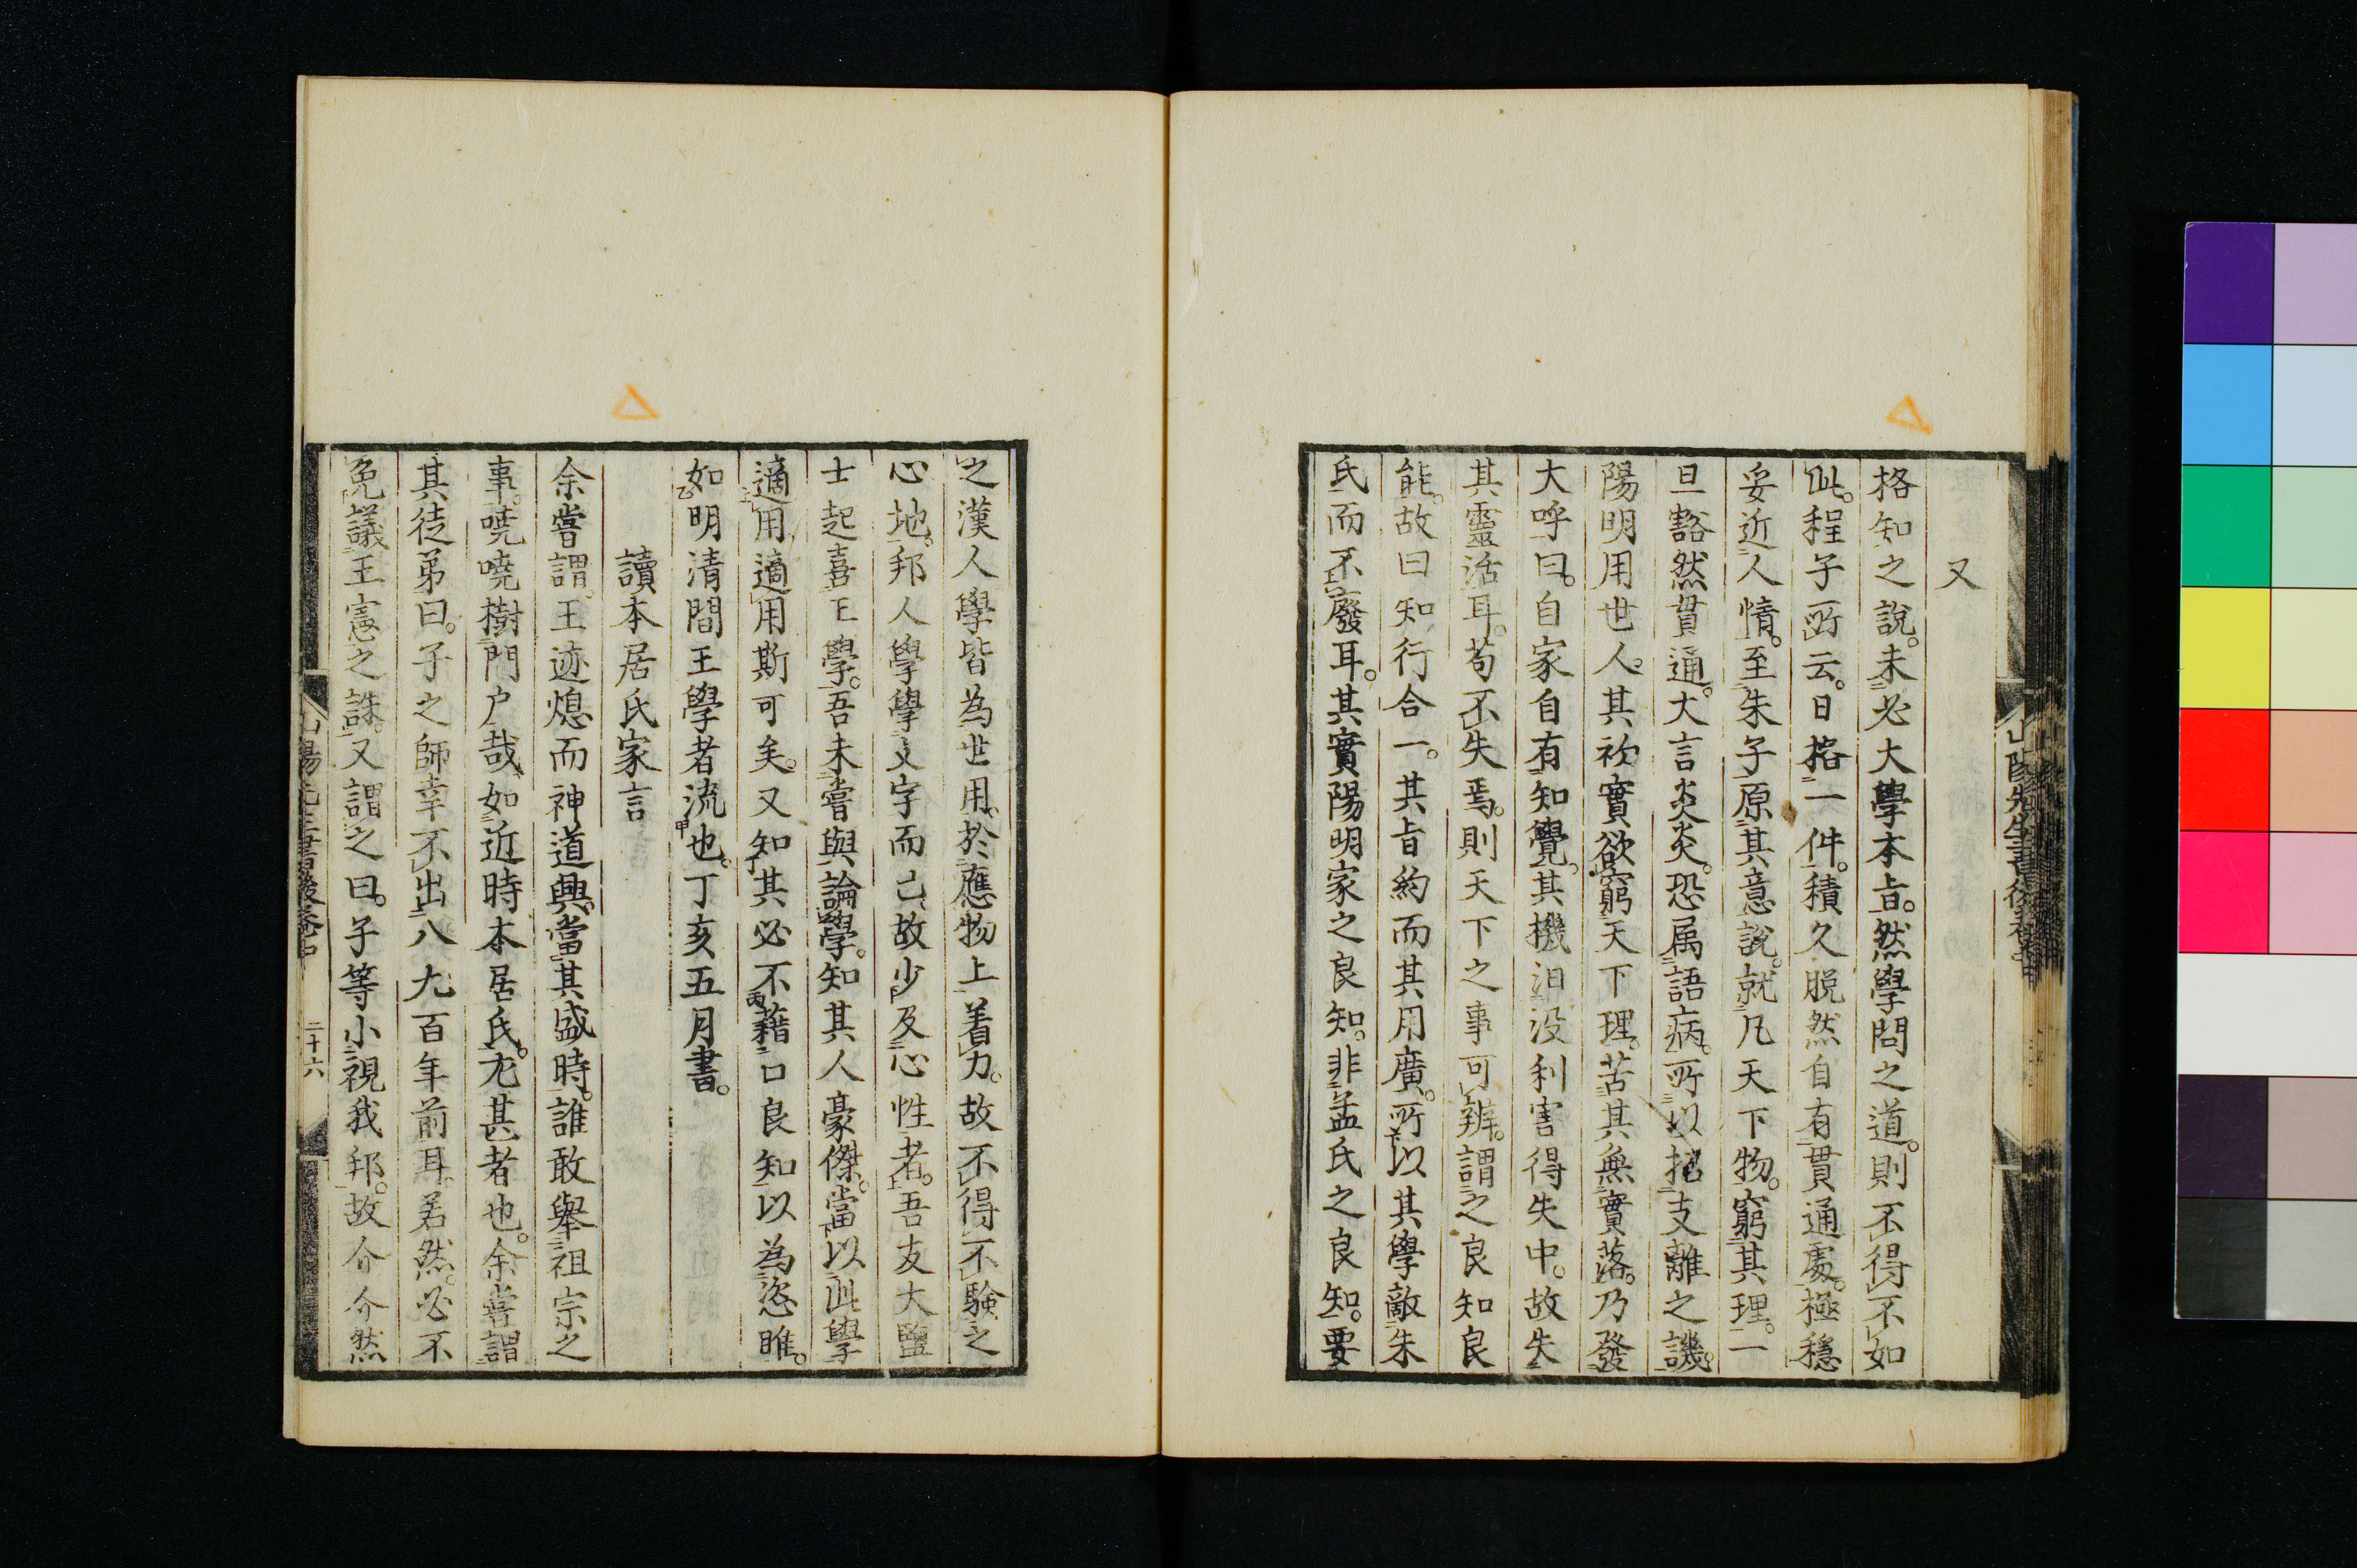 又
格知之說。未必大學本旨。然學問之道。則不得不如
此。程子所云。日格一件。積久脱然自有貫通處。極穩
妥近人情。至朱子原其意說。就凡天下物。窮其理。一
旦豁然貫通。大言炎炎。恐属語病。所以招支離之譏。
陽明用世人。其初實欲窮天下理。苦其無實落。乃發
大呼曰。自家自有知覺。其機汩没利害得失中。故失
其靈活耳。苟不失焉。則天下之事可辨。謂之良知良
能。故曰知行合一。其旨約而其用廣。所以其學敵朱
氏而不廢耳。其實陽明家之良知。非孟氏之良知。要
之漢人學皆為世用。於應物上着力。故不得不驗之
心地。邦人學學文字而已。故少及心性者。吾友大鹽
士起喜王學。吾未嘗與論學。知其人豪傑。當以此學
適用適用斯可矣。又知其必不藉口良知以為恣睢。
如明清間王學者流也。丁亥五月書。
讀本居氏家言
余嘗謂。王迹熄而神道興。當其盛時。誰敢舉祖宗之
事。嘵嘵樹門户哉。如近時本居氏。尤甚者也。余嘗謂
其徒弟曰。子之師幸不出八九百年前耳。若然。必不
免議王憲之誅。又謂之曰。子等小視我邦。故介介然
山陽先生書後卷中
二十六
山陽先生書後卷中